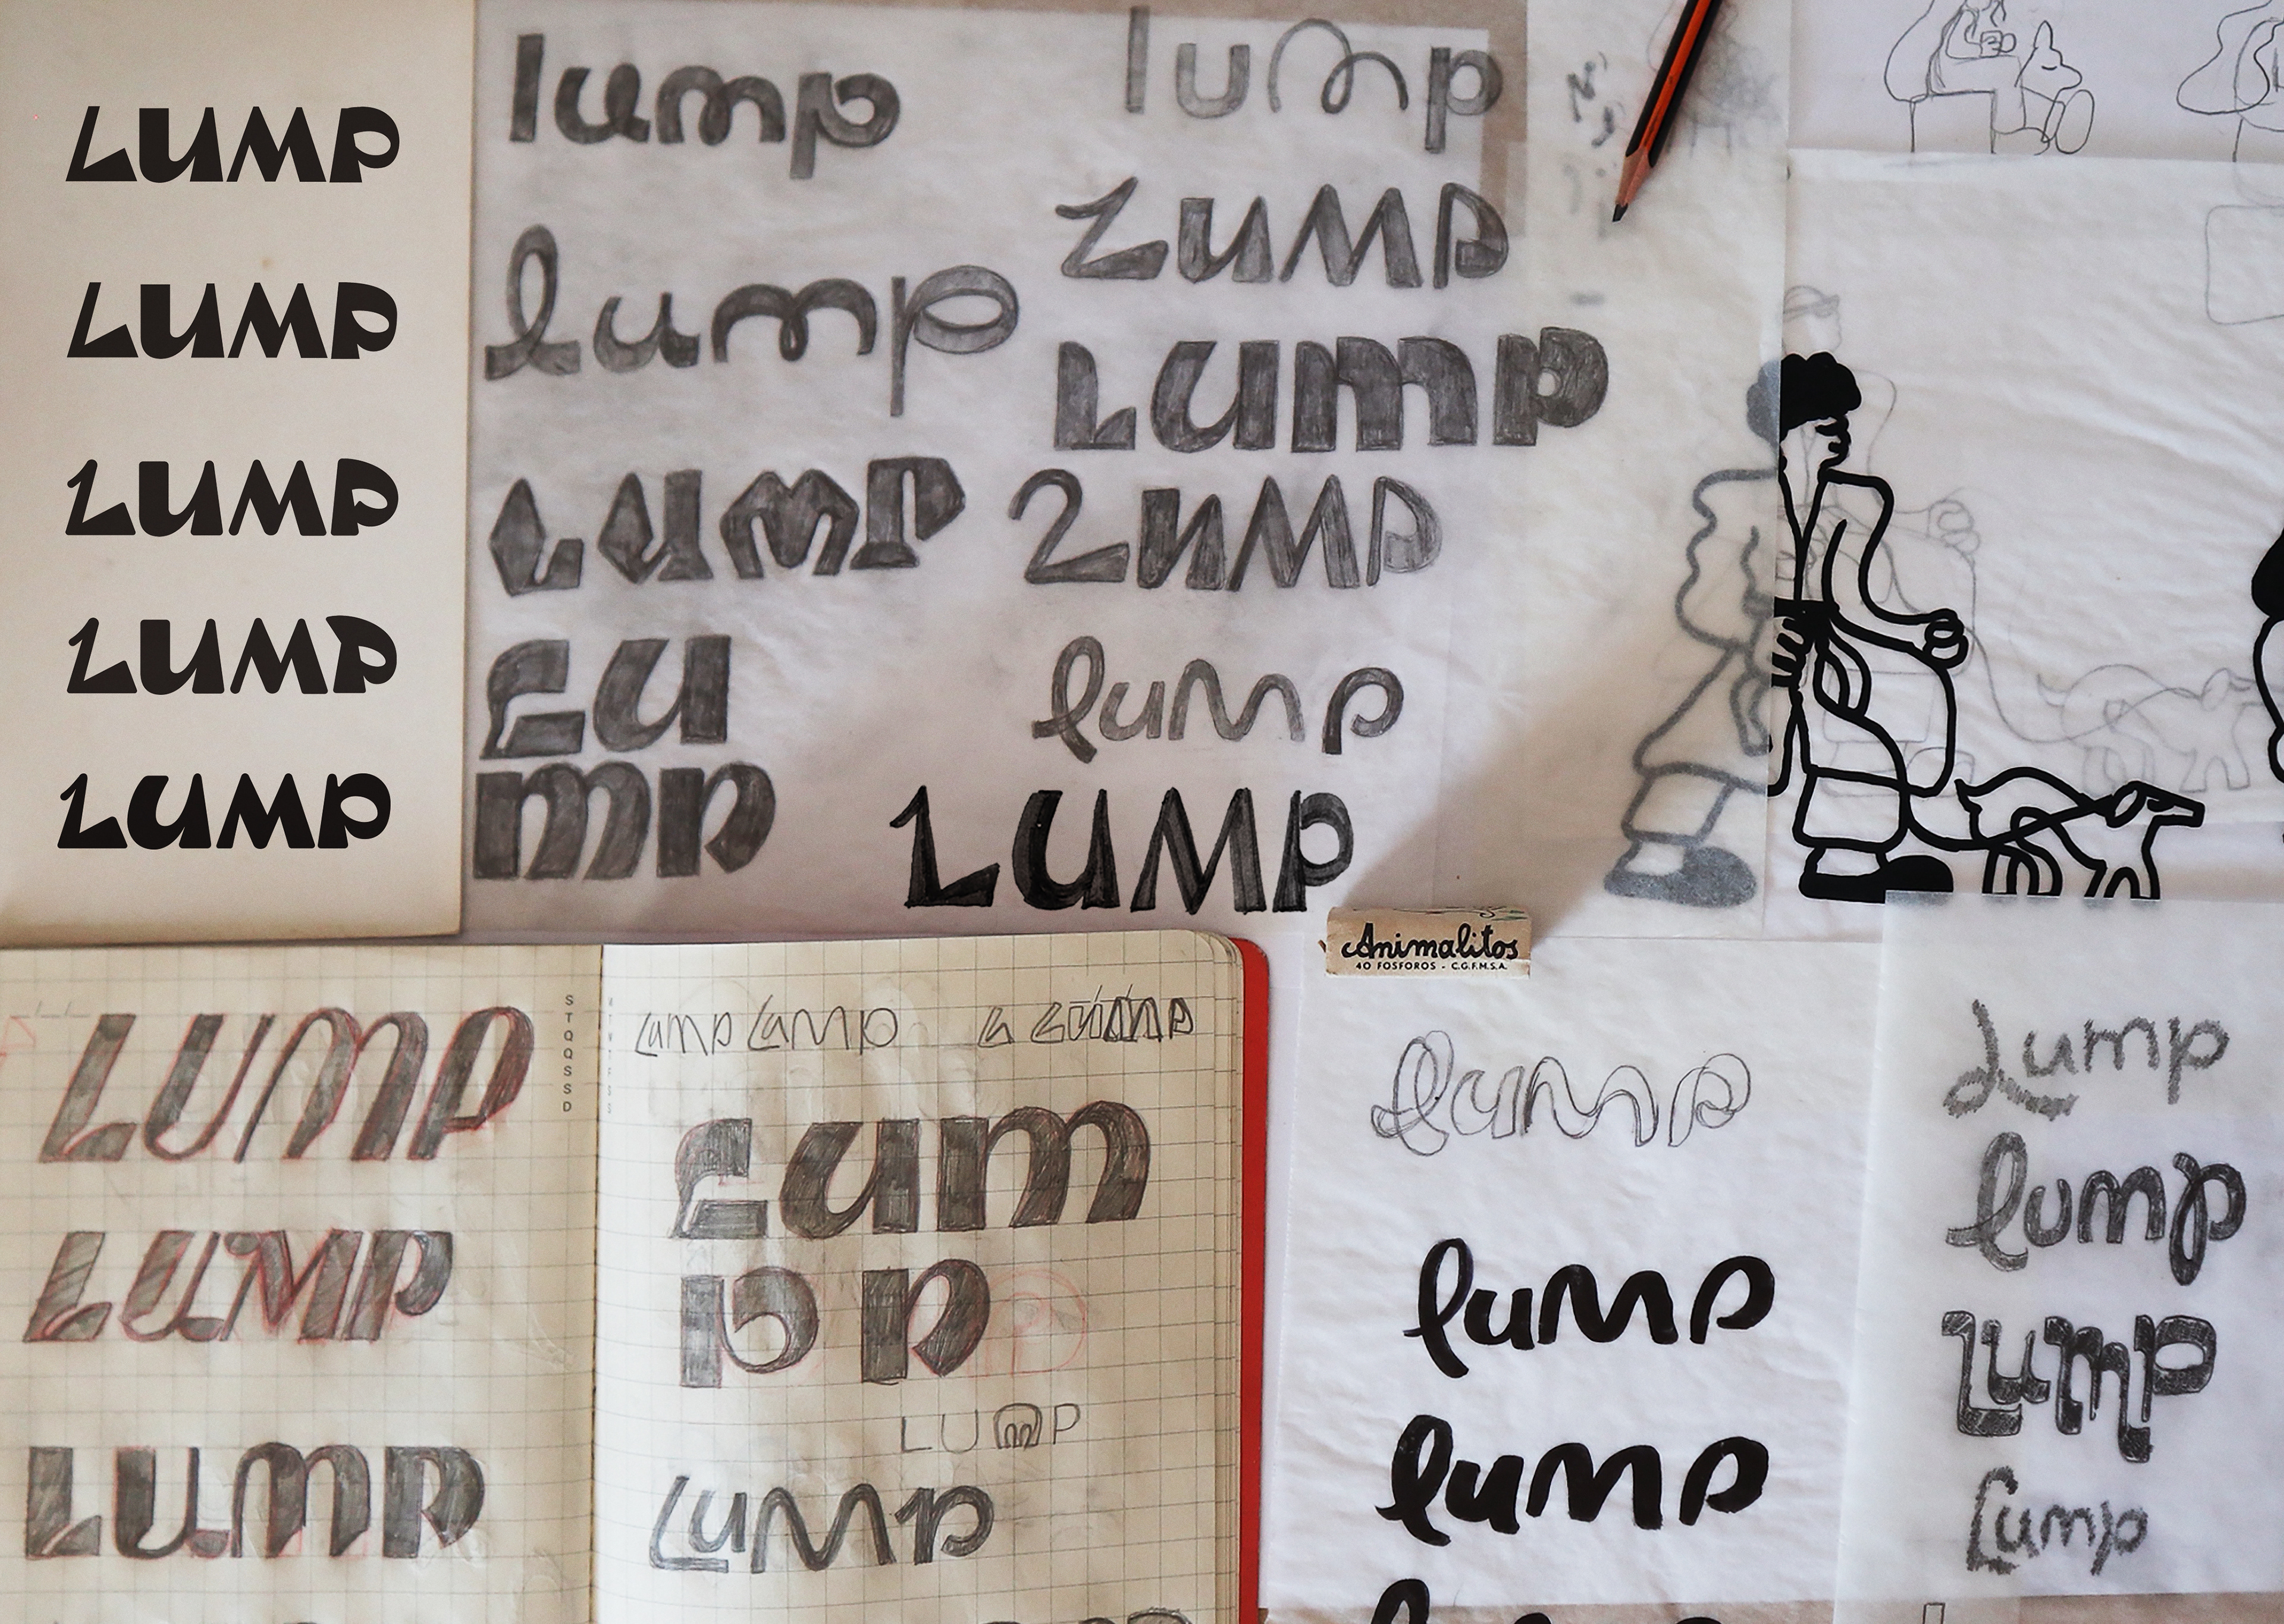 LUMP
LUMP
LUMP
LUMP
LUMP
lump
lump
LUMP
LU
mp
lump
LUMP
LUmP
LUMP
lump
LUMP
Animalitos
40 FOSFOROS - C.G.F.M.S.A.
LUmP
LUMP
LUmP
S
T
Q
Q
S
S
D
Lump Lump
Lum
p p
LUmP
LuMp
lump
luMp
luMp
Lump
lump
Lump
Lump